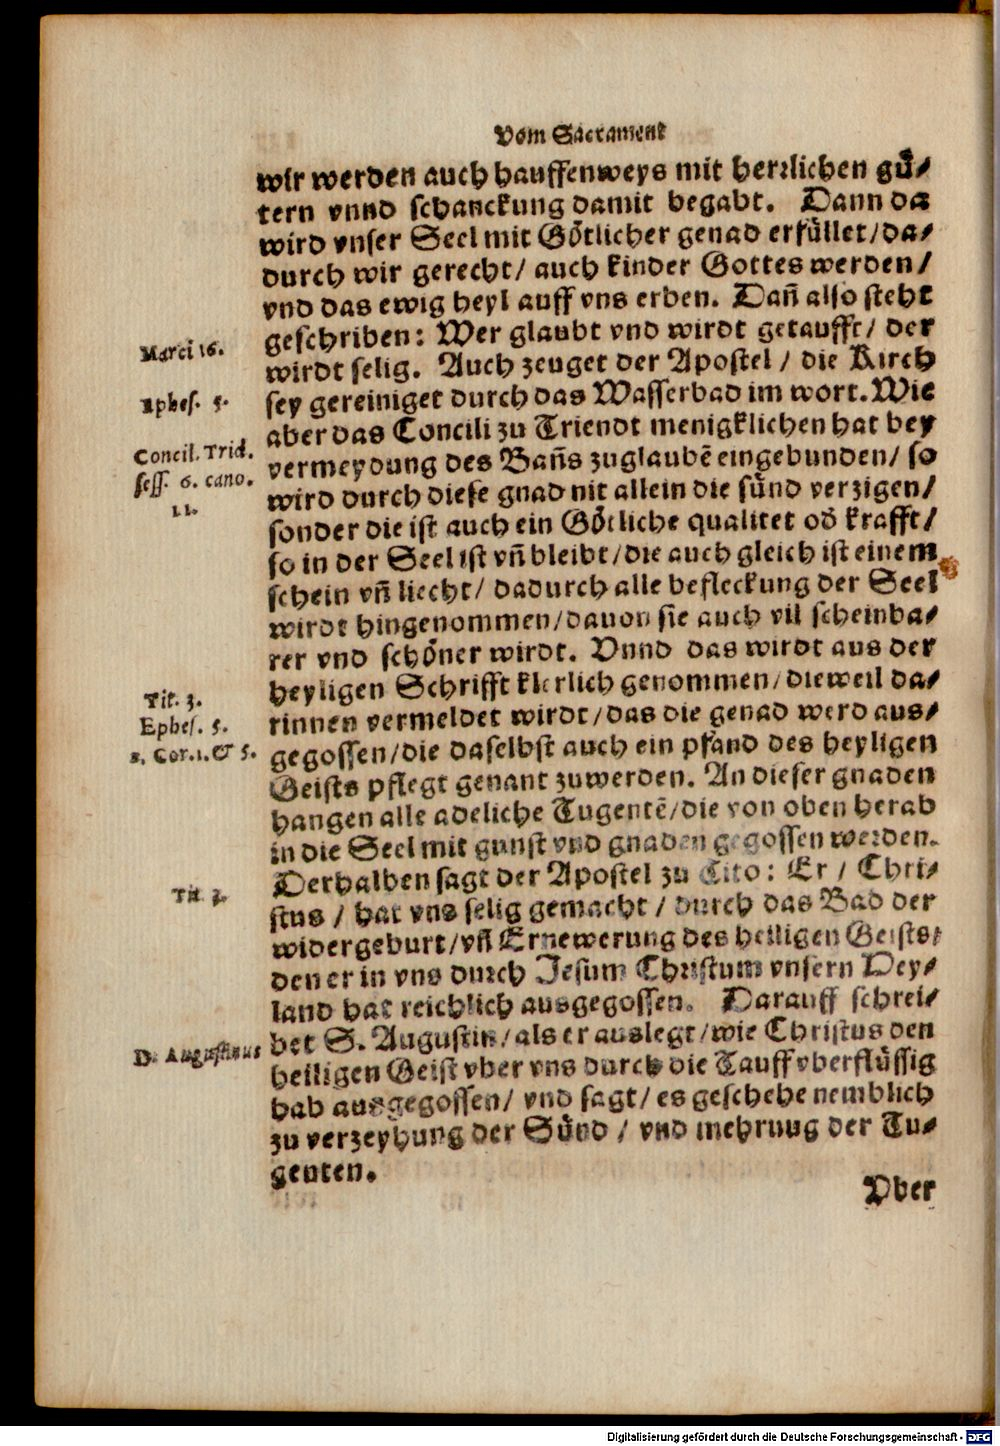 Vom Sacrament
wir werden auch hauffenweys mit herꝛlichen guͤ/
tern vnnd schanckung damit begabt. Dann da
wird vnser Seel mit Goͤtlicher genad erfuͤllet/da/
durch wir gerecht/ auch kinder Gottes werden/
vnd das ewig heyl auff vns erben. Dañ also steht
geschriben: Wer glaubt vnd wirdt getaufft/ der
Marci 16.
wirdt selig. Auch zeuget der Apostel / die Kirch
Ephes. 5.
sey gereiniget durch das Wasserbad im wort. Wie
aber das Concili zu Triendt menigklichen hat bey
Concil. Trid.
vermeydung des Bañs zuglaubẽ eingebunden/ so
sess. 6. cano.
wird durch diese gnad nit allein die suͤnd verzigen/
11.
sonder die ist auch ein Goͤtliche qualitet od̕ krafft/
so in der Seel ist vñ bleibt/die auch gleich ist einem
schein vñ liecht/ dadurch alle befleckung der Seel
wirdt hingenommen/dauon sie auch vil scheinba/
rer vnd schoͤner wirdt. Vnnd das wirdt aus der
heyligen Schrifft klerlich genommen/dieweil da/
Tit. 3.
rinnen vermeldet wirdt/das die genad werd aus/
Ephes. 5.
gegossen/die daselbst auch ein pfand des heyligen
2. Cor. 1. & 5.
Geists pflegt genant zuwerden. An dieser gnaden
hangen alle adeliche Tugentẽ/die von oben herab
in die Seel mit gunst vnd gnaden gegossen werden.
Derhalben sagt der Apostel zu Tito: Er / Chri/
Tit. 3.
stus / hat vns selig gemacht / durch das Bad der
widergeburt/vñ Ernewerung des heiligen Geists/
den er in vns durch Jesum Christum vnsern Hey/
land hat reichlich ausgegossen. Darauff schrei/
bet S. Augustin/als er auslegt/wie Christus den
D. Augustinus
heiligen Geist vber vns durch die Tauff vberfluͤssig
hab ausgegossen/ vnd sagt/ es geschehe nemblich
zu verzeyhung der Suͤnd / vnd mehrung der Tu/
genten.
Vber
Digitalisierung gefördert durch die Deutsche Forschungsgemeinschaft - DFG